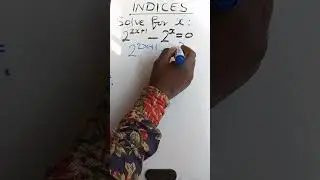 INDICES
Solve for x:
2²ˣ⁺¹ − 2ˣ = 0
2²ˣ⁺¹